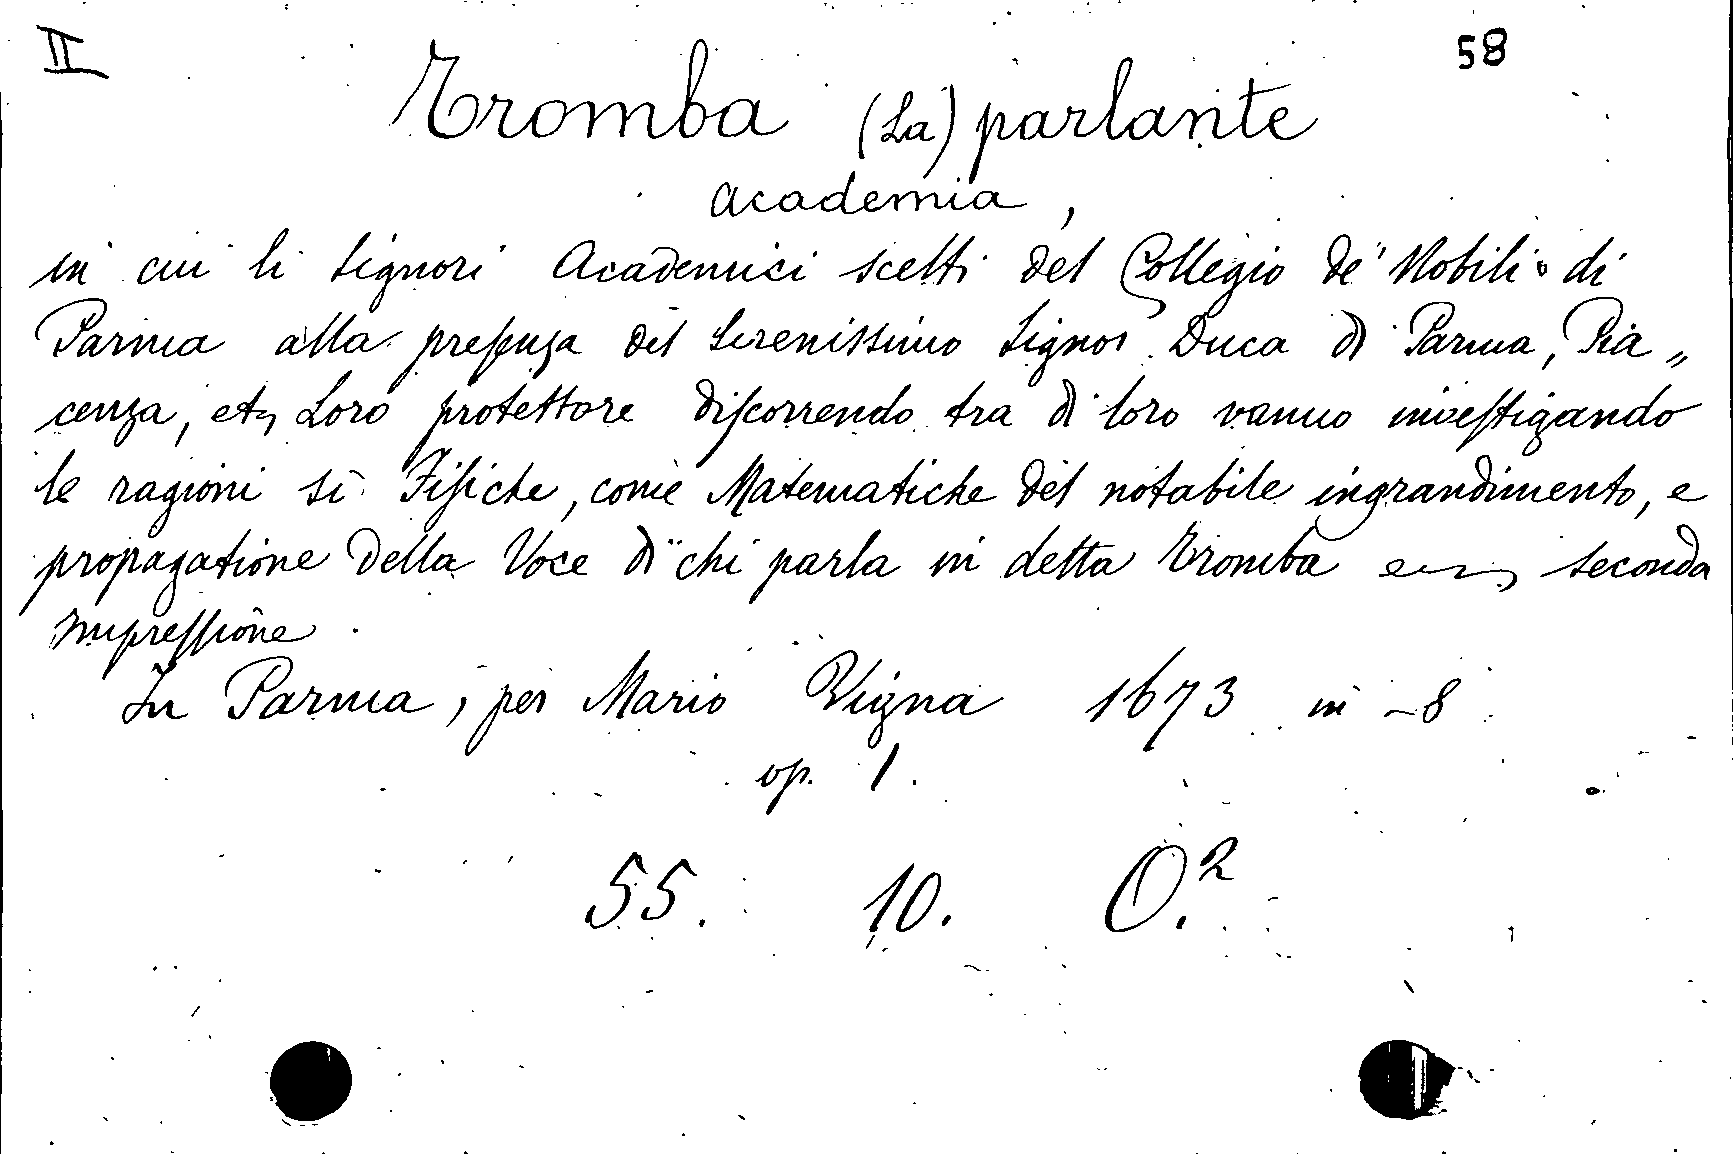 II 58
Tromba (La) parlante
Academia,
in cui li Signori Academici scelti del Collegio de' Nobili di
Parma alla presenza del Serenissimo Signor Duca di Parma, Pia„
cenza, etc, Loro protettore discorrendo tra di loro vanno investigando
le ragioni sì Fisiche, come Matematiche del notabile ingrandimento, e
propagatione della Voce di chi parla in detta Tromba seconda
impressione.
In Parma, per Mario Vigna 1673 in -8
op. 1.
55. 10. O.²